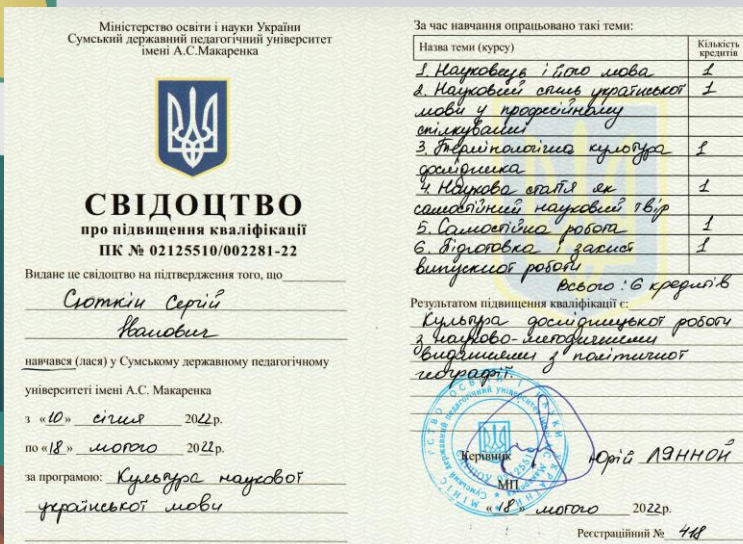 Міністерство освіти і науки України
Сумський державний педагогічний університет
імені А.С.Макаренка
СВІДОЦТВО
про підвищення кваліфікації
ПК № 02125510/002281-22
Видане це свідоцтво на підтвердження того, що
Сюткін Сергій
Іванович
навчався (лася) у Сумському державному педагогічному
університеті імені А.С. Макаренка
з «10» січня 2022р.
по «18» лютого 2022р.
за програмою: Культура наукової
української мови
За час навчання опрацьовано такі теми:
Назва теми (курсу) Кількість кредитів
1. Науковець і його мова 1
2. Науковий стиль української 1
мови у професійному
спілкуванні
3. Термінологічна культура 1
дослідника
4. Наукова стаття як 1
самостійний науковий твір
5. Самостійна робота 1
6. Підготовка і захист 1
випускної роботи
Всього : 6 кредитів
Результатом підвищення кваліфікації є:
Культура дослідницької роботи
з науково-методичними
виданнями з політичної
географії.
Керівник Юрій ЛЯННОЙ
МП
«18» лютого 2022р.
Реєстраційний № 418